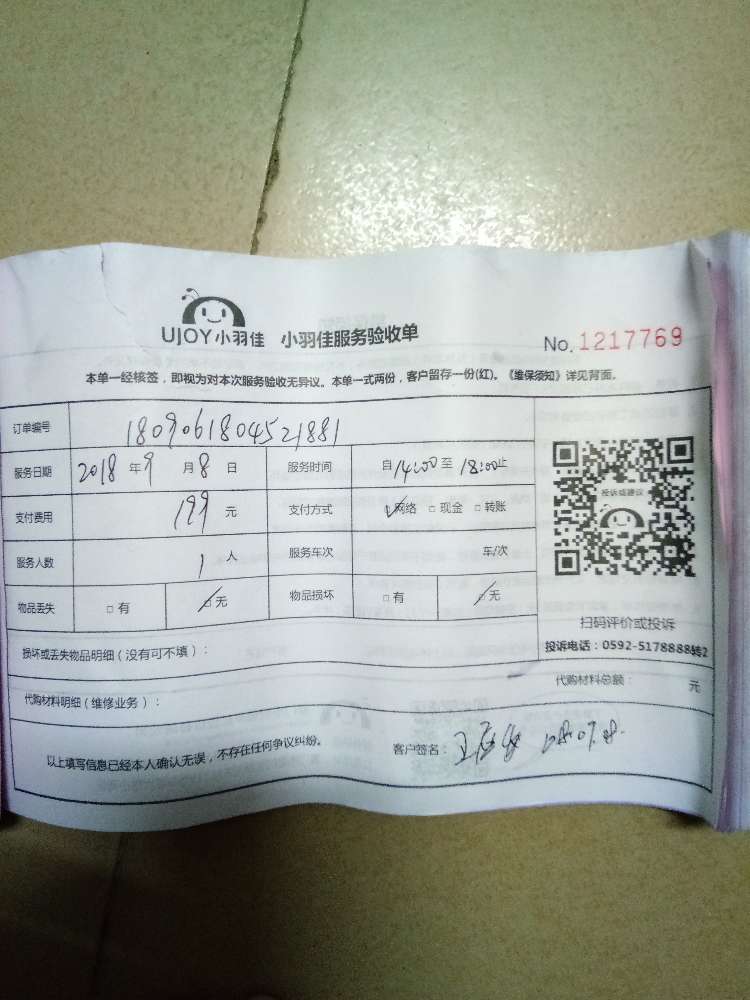 UJOY小羽佳 小羽佳服务验收单
No. 1217769
本单一经核签，即视为对本次服务验收无异议。本单一式两份，客户留存一份(红)。《维保须知》详见背面。
订单编号 1809061804521881
服务日期 2018 年 9 月 8 日 服务时间 自 14:00 至 18:00 止
支付费用 199 元 支付方式 ☑网络 □现金 □转账
服务人数 1 人 服务车次 车/次
物品丢失 □有 ☑无 物品损坏 □有 ☑无
投诉或建议
扫码评价或投诉
投诉电话：0592-5178888转2
损坏或丢失物品明细（没有可不填）：
代购材料明细（维修业务）：
代购材料总额： 元
以上填写信息已经本人确认无误，不存在任何争议纠纷。
客户签名：